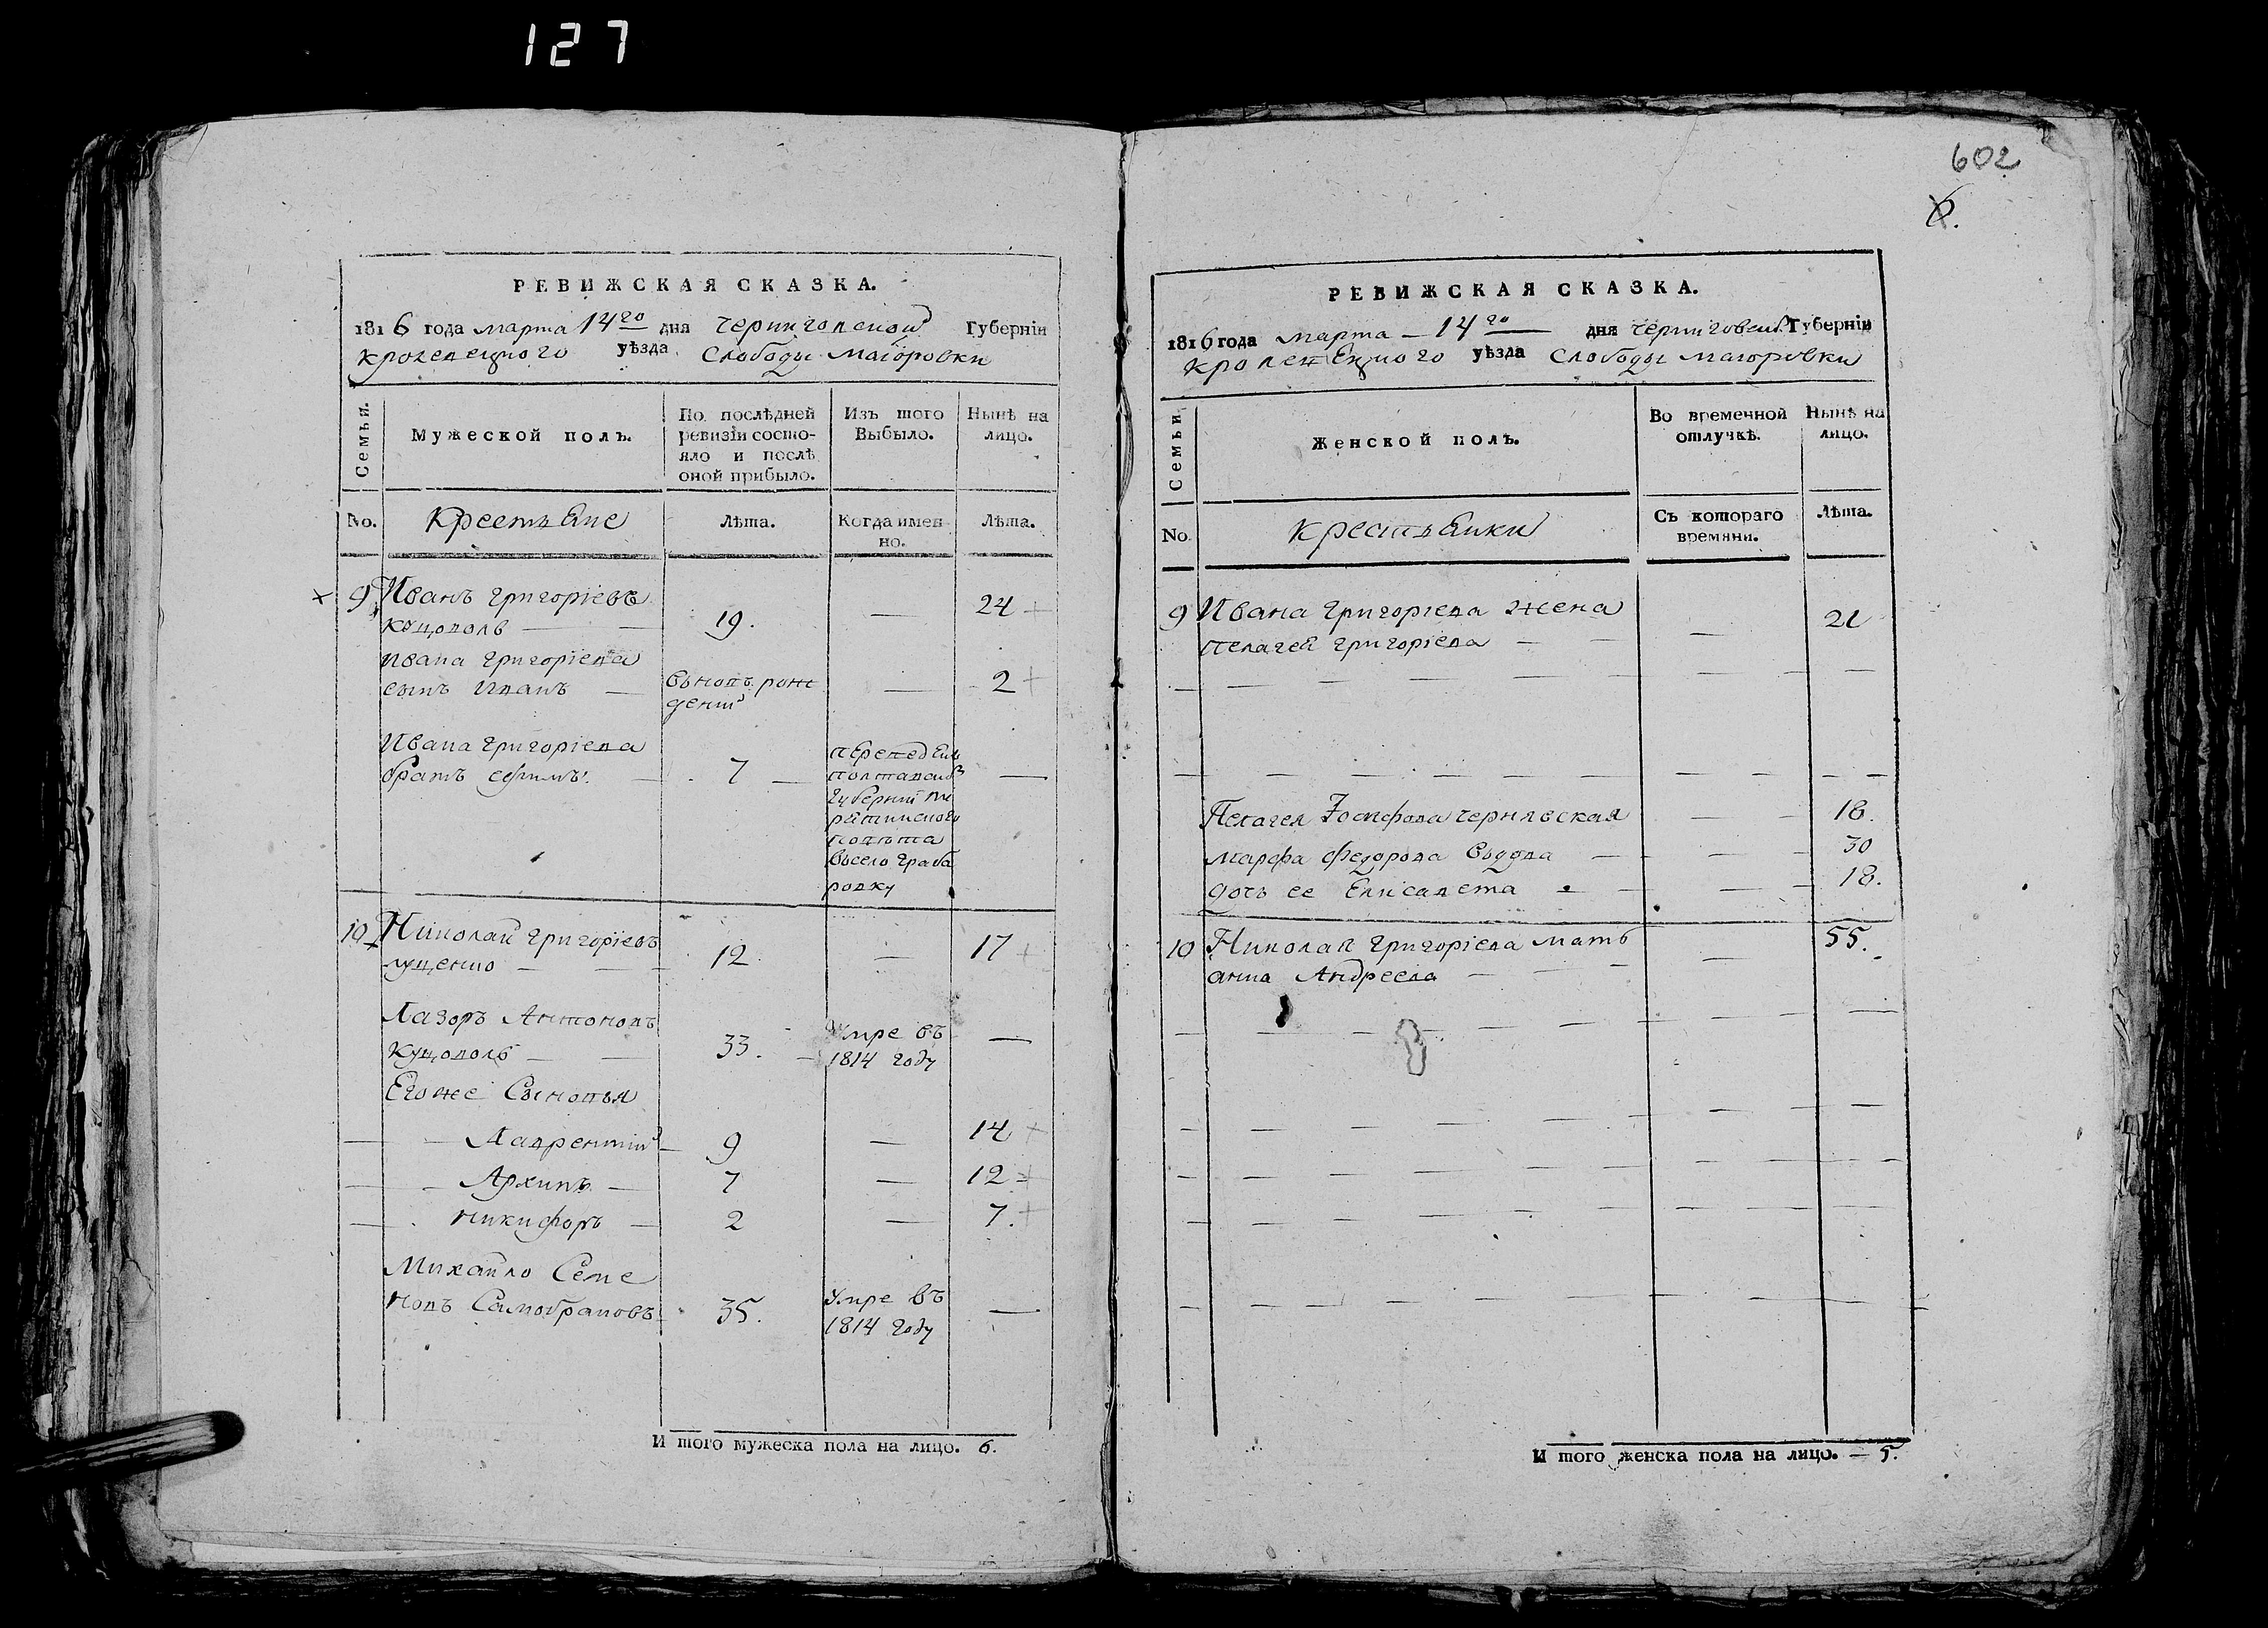 127
602
6.
РЕВИЖСКАЯ СКАЗКА.
1816 года марта 14го дня Черниговской Губерніи
Кролевецкого уѣзда Слободы Маіоровки
Семьи.
Мужеской полъ.
По послѣдней ревизіи состо-
яло и послѣ
оной прибыло.
Изъ того
Выбыло.
Нынѣ на
лицо.
No.
Крестьяне
Лѣта.
Когда имен
но.
Лѣта.
9 Иванъ Григоріевъ
Куцоволъ — 19. — 24
Ивана Григоріева
сынъ Иванъ — вновь рож
деній — 2
Ивана Григоріева
братъ Ефимъ — 7 — переведенъ
Полтавской
Губерніи Пи
рятинского
повѣта
въ село Граба
ровку
10 Николай Григоріевъ
Луценко — 12 — 17
Лазоръ Антоновъ
Куцоволъ — 33. умре въ
1814 году —
Его же Сыновья
Лаврентій — 9 — 14
Архипъ — 7 — 12
Никифоръ — 2 — 7.
Михайло Семе
новъ Самобрановъ 35. умре въ
1814 году —
И того мужеска пола на лицо. 6.
РЕВИЖСКАЯ СКАЗКА.
1816 года марта — 14го дня Черниговской Губерніи
Кролевецкого уѣзда Слободы Маіоровки
Семьи.
Женской полъ.
Во временной
отлучкѣ.
Нынѣ на
лицо.
No.
Крестьянки
Съ котораго
времяни.
Лѣта.
9 Ивана Григоріева жена
Пелагея Григоріева — 21
Пелагея Іосифова Чернявская — 18.
Марфа Федорова вдова — 30
дочь ее Елисавета — 18.
10 Николая Григоріева мать
Анна Андреева — 55.
И того женска пола на лицо. — 5.